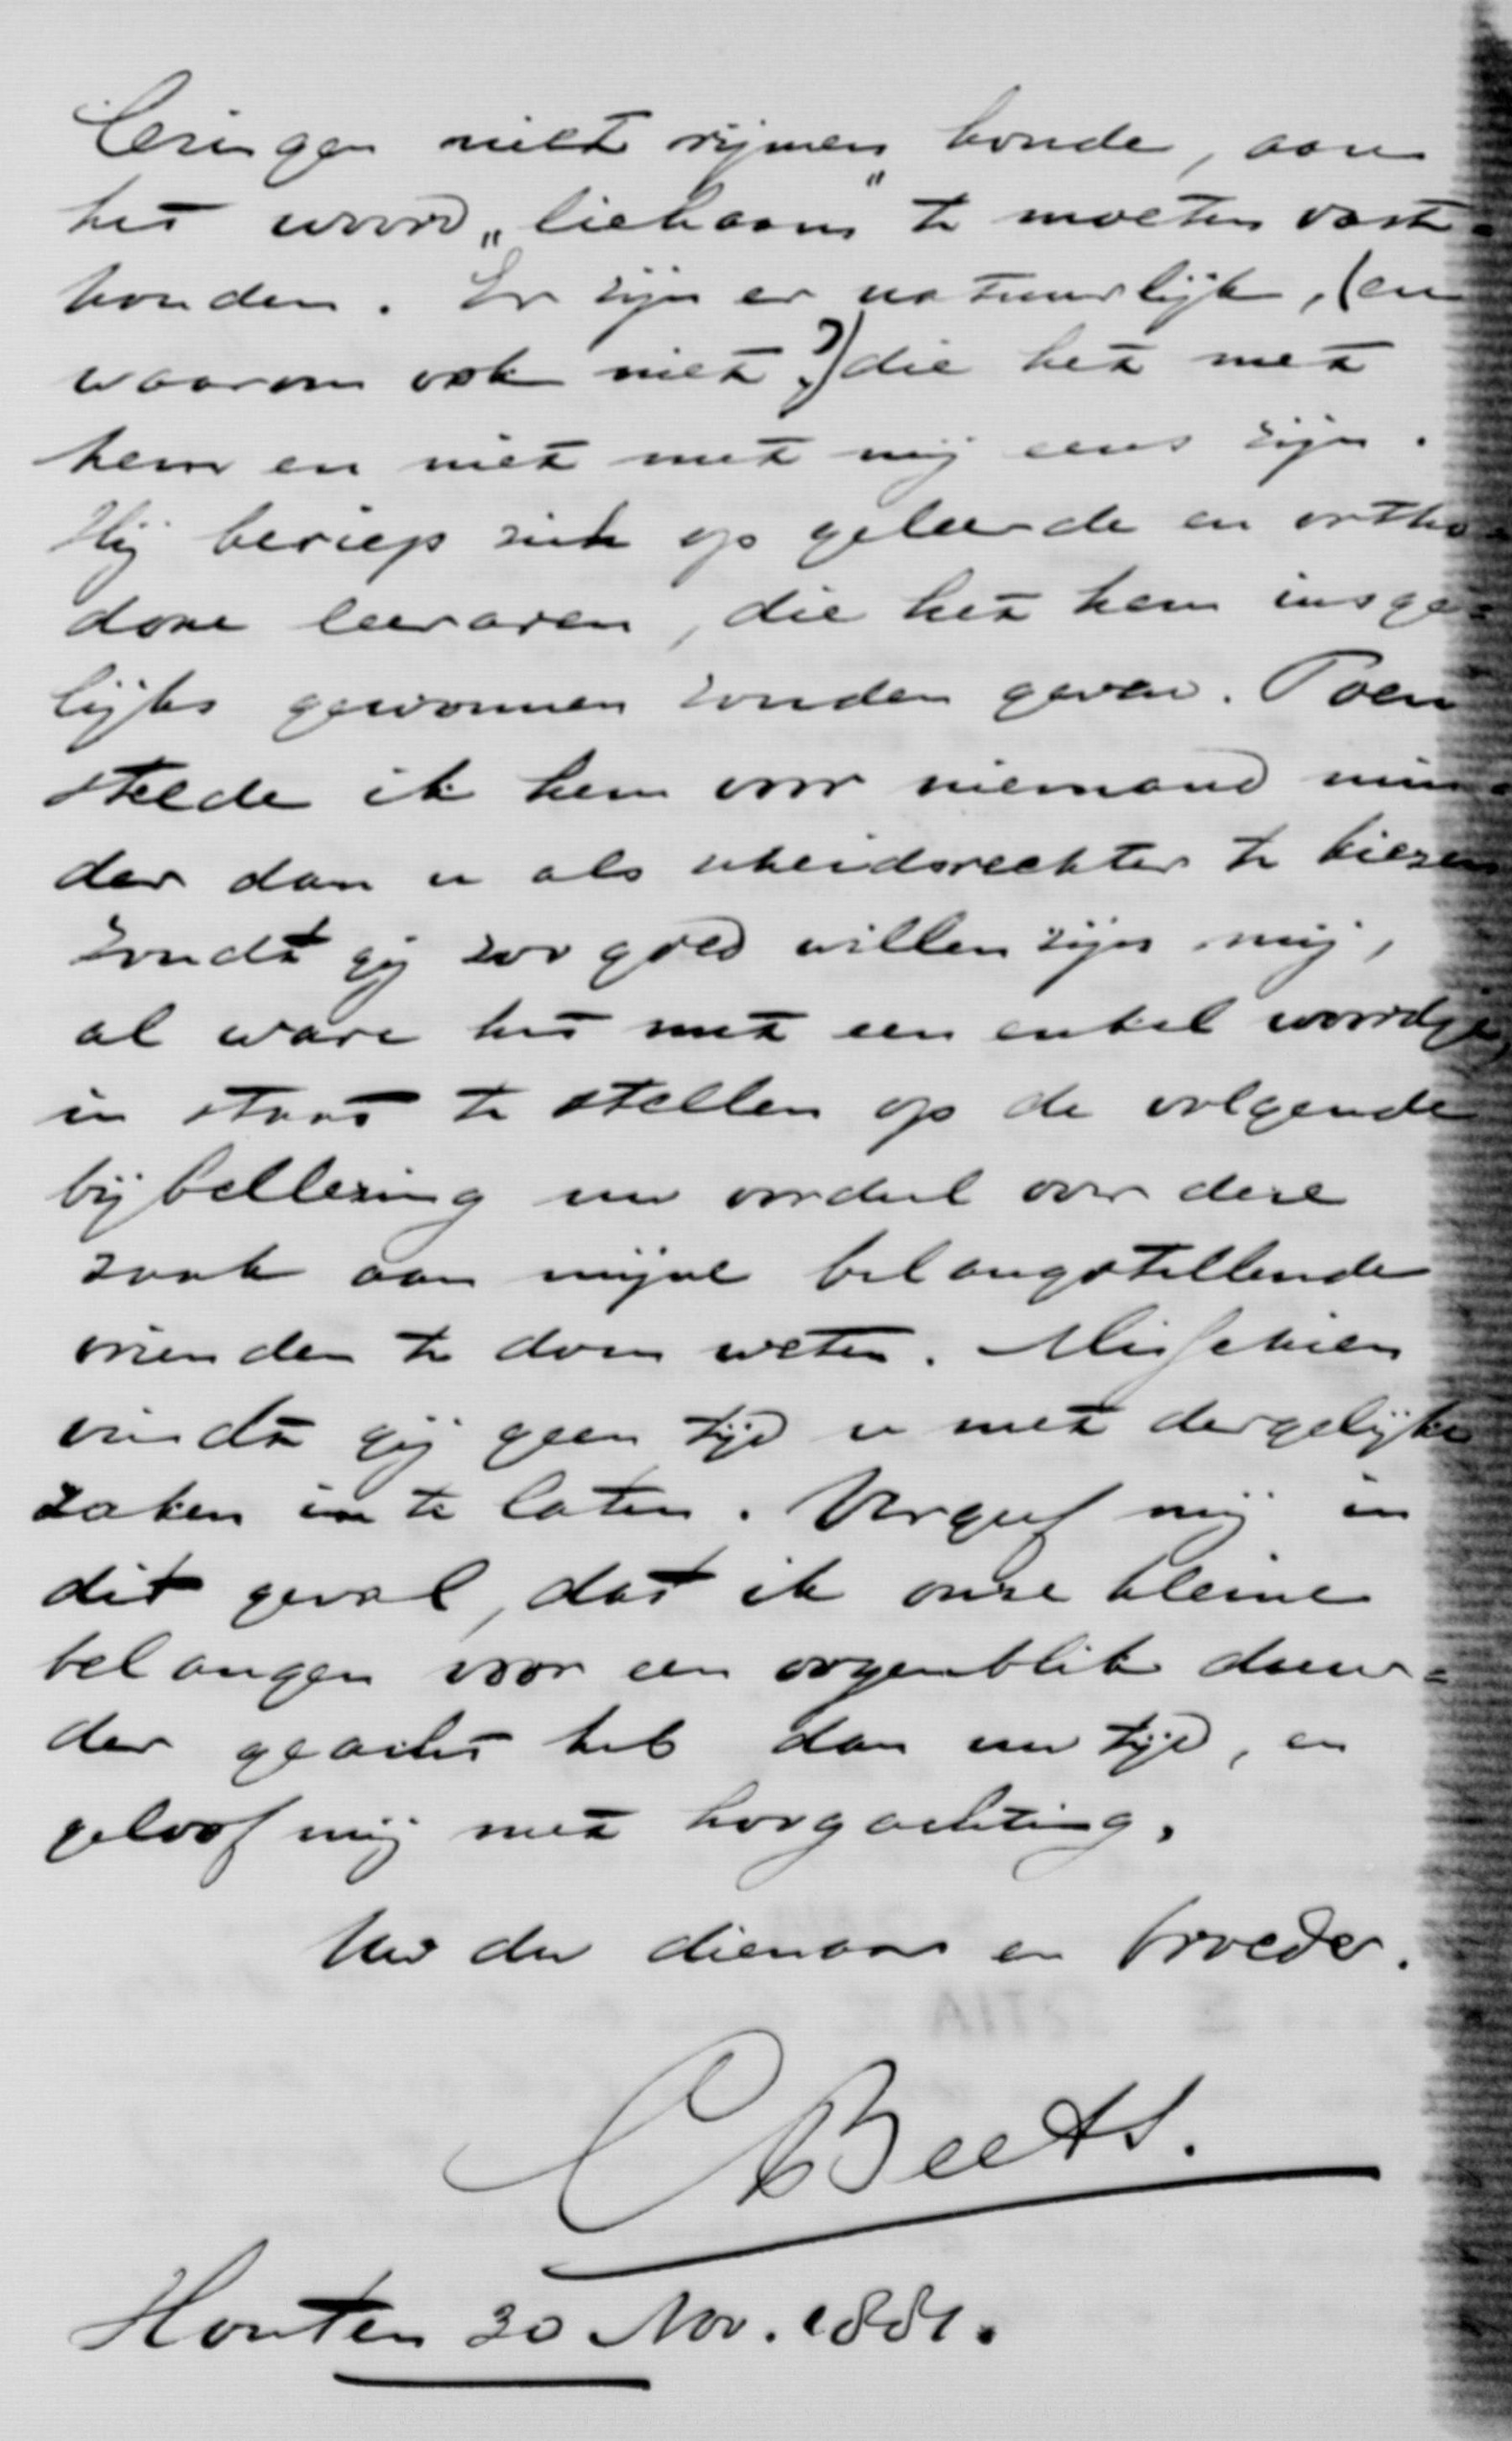 leringen niet rijmen konde, aan
het woord „lichaam" te moeten vast-
houden. Er zijn er natuurlijk, (en
waarom ook niet?) die het met
hem en niet met mij eens zijn.
Hij beriep zich op geleerde en ortho-
doxe leeraren, die het hem insge-
lijks gewonnen zouden geven. Toen
stelde ik hem voor niemand min-
der dan u als scheidsrechter te kiezen
Zoudt gij zoo goed willen zijn mij,
al ware het met een enkel woordje,
in staat te stellen op de volgende
bijbellezing uw oordeel over deze
zaak aan mijne belangstellende
vrienden te doen weten. Misschien
vindt gij geen tijd u met dergelijke
zaken in te laten. Vergeef mij in
dit geval, dat ik onze kleine
belangen voor een oogenblik duur-
der geacht heb dan uw tijd, en
geloof mij met hoogachting,
Uw dw dienaar en broeder.
CBeets.
Houten 30 Nov. 1881.